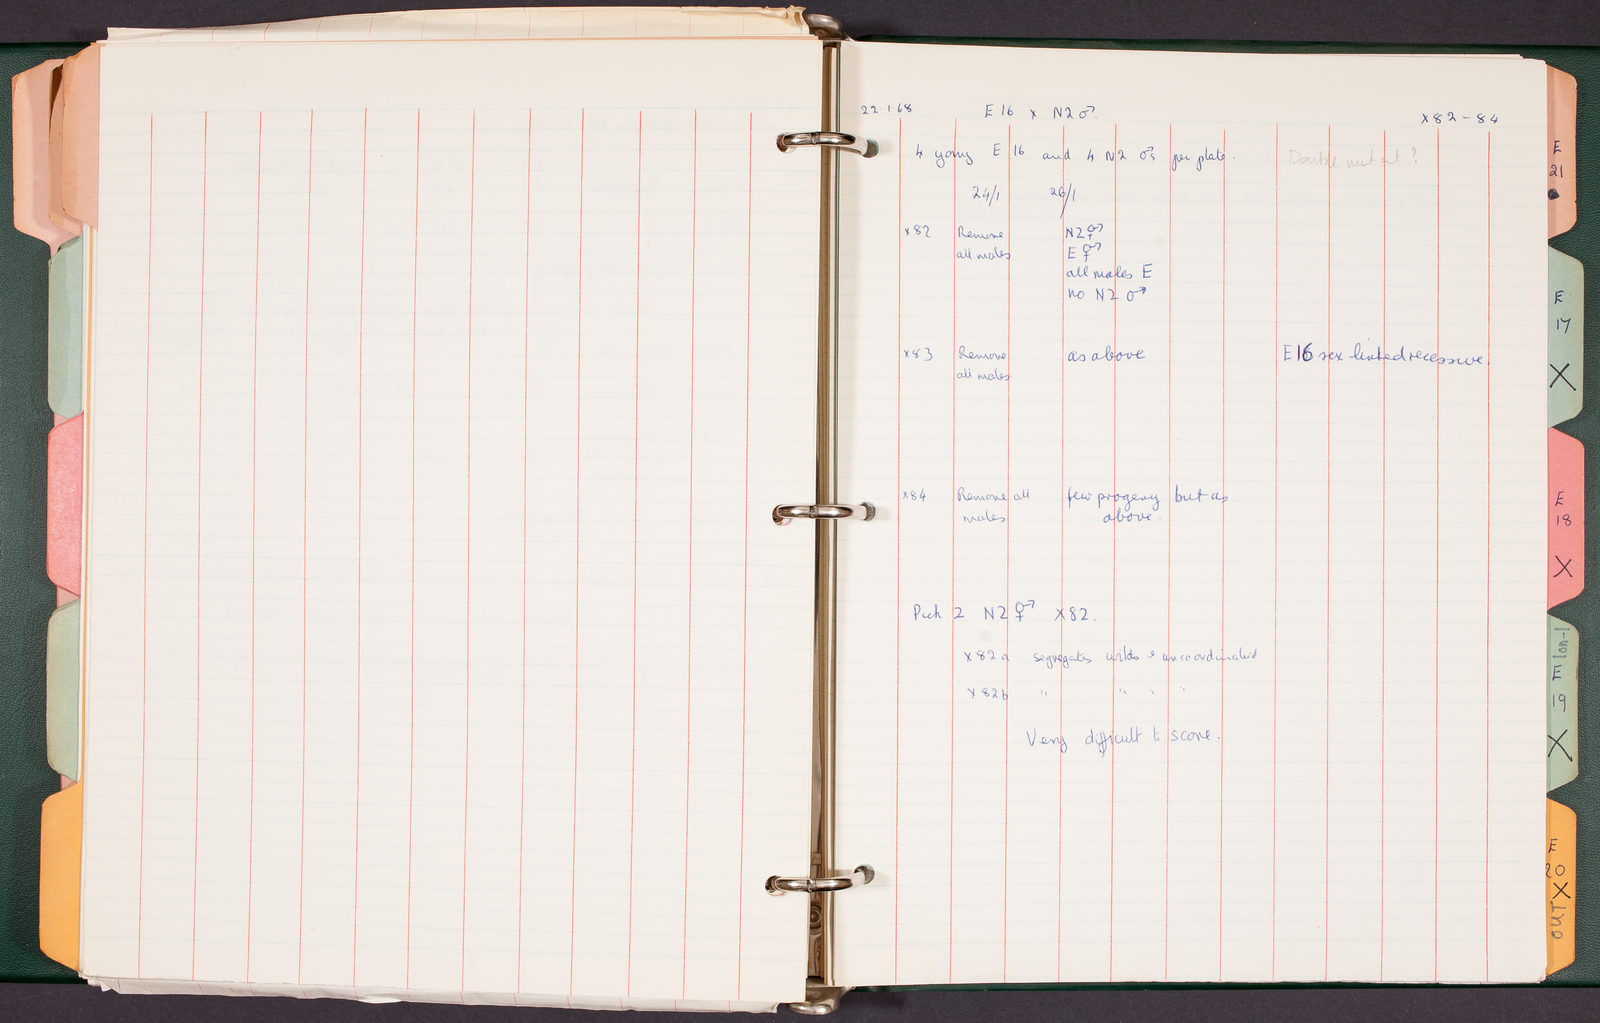 22.1.68 E16 x N2 ♂. x82-84
4 young E16 and 4 N2 ♂s per plate. Double mutant?
24/1 26/1
x82 Remove N2 ⚥
all males E ⚥
all males E
no N2 ♂
x83 Remove as above E16 sex linked recessive.
all males
x84 Remove all few progeny but as
males above.
Pick 2 N2 ⚥ X82.
x82a segregates wilds & uncoordinated
x82b " " " "
Very difficult to score.
E
21
E
17
X
E
18
X
lon-1
E
19
X
E
20
X
OUT